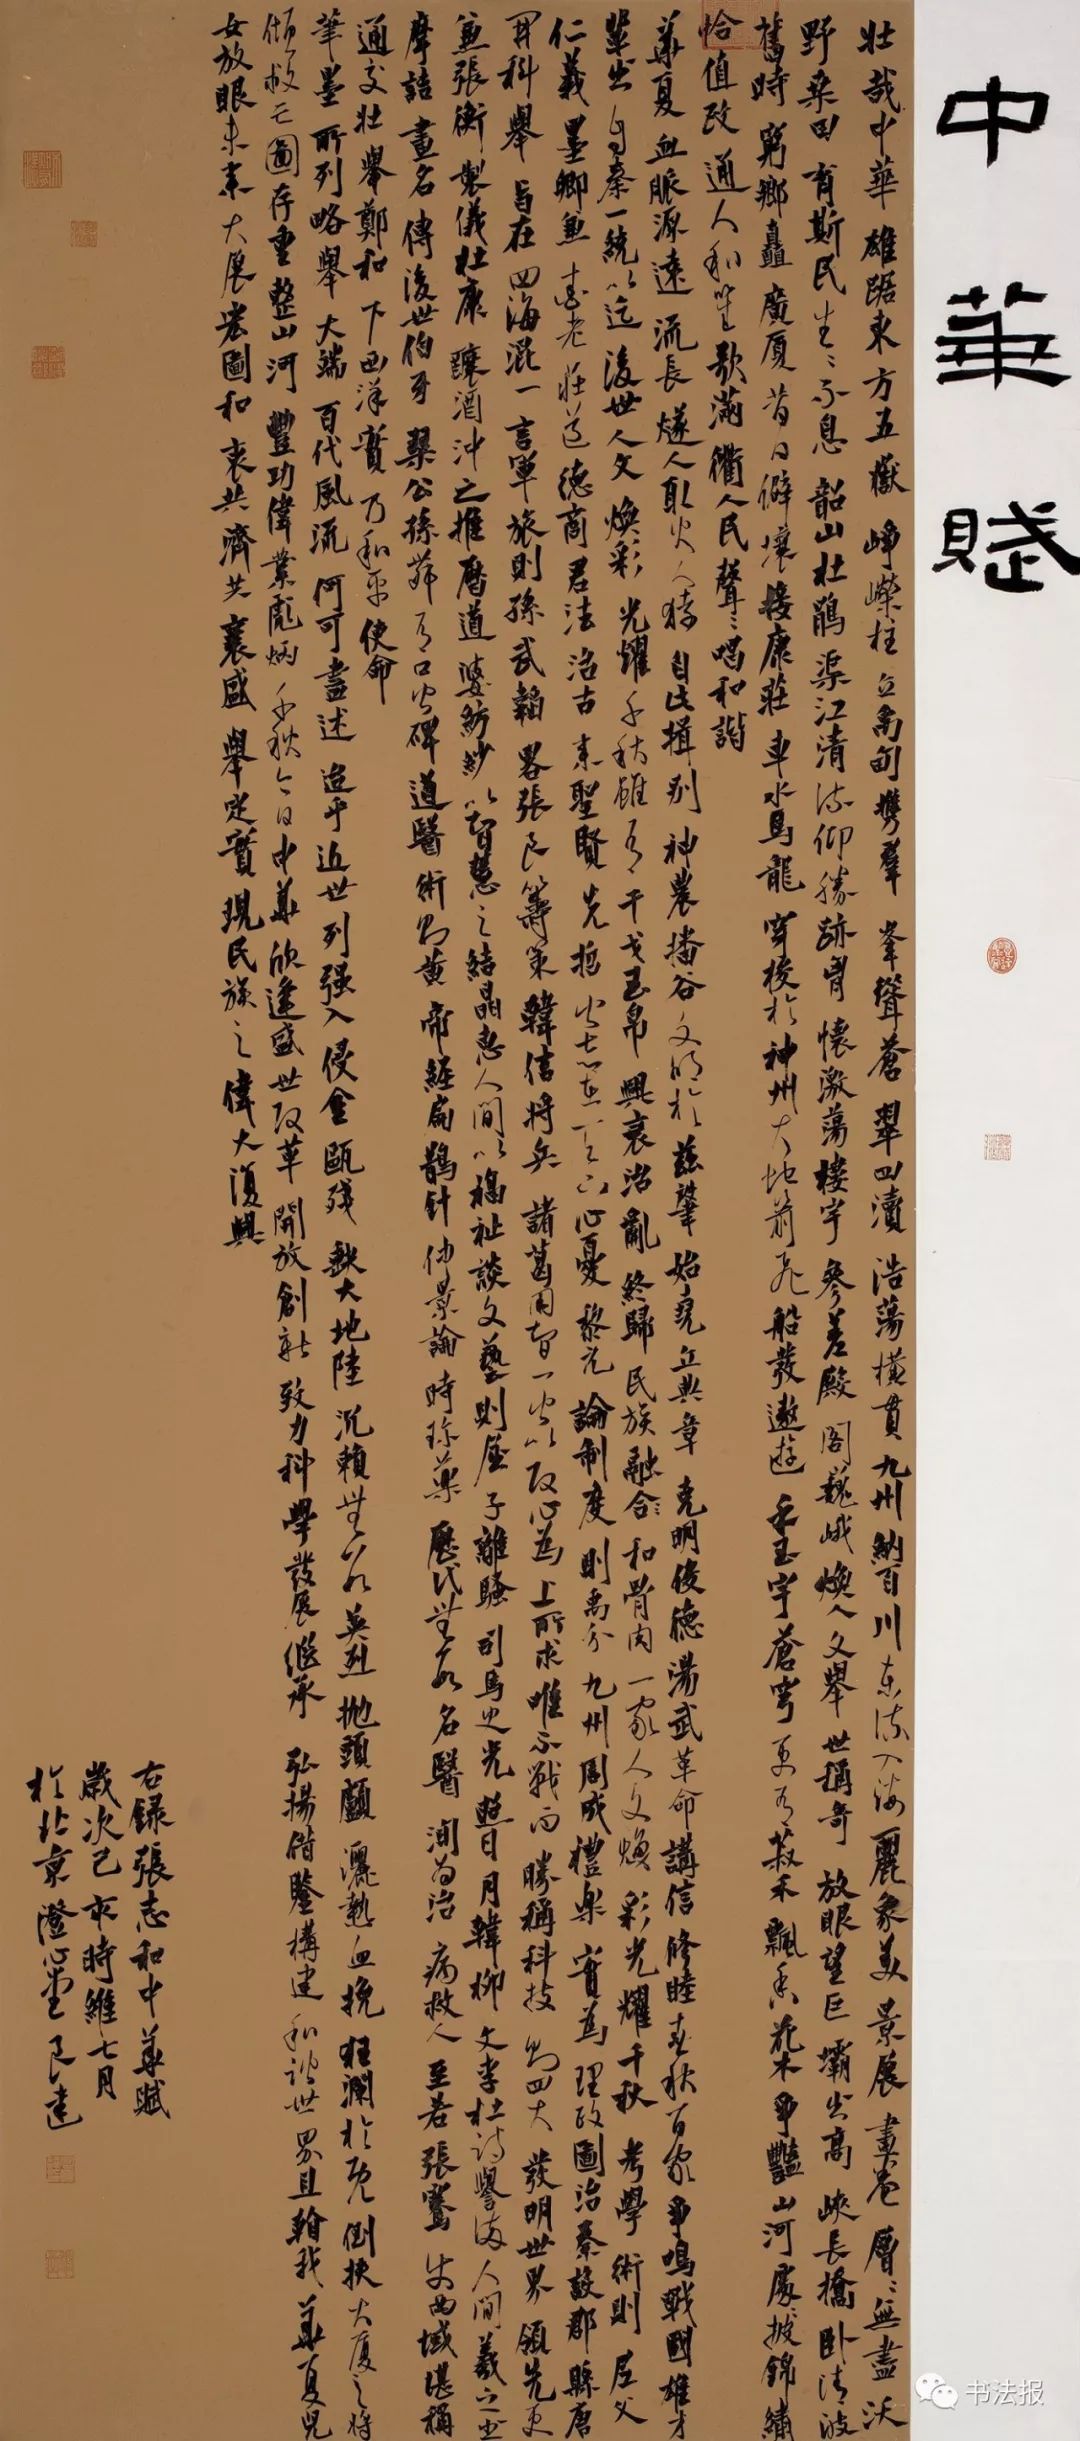 中華賦
壯哉中華雄踞東方五嶽崢嶸柱立禹甸攜羣峯聳蒼翠四瀆浩蕩橫貫九州納百川東流入海麗象美景展畫卷層ミ無盡沃
野桑田育斯民生ミ不息韶山杜鵑渠江清流仰勝跡胷懷激蕩樓宇參差殿閣巍峨煥人文舉世稱奇放眼望巨壩出高峽長橋臥清波
舊時窮鄉矗廣廈昔日僻壤接康莊車水馬龍穿梭於神州大地箭飛船發遨遊玉宇蒼穹更有菽禾飄香花木爭豔山河處ミ披錦繡
恰值政通人和笙歌滿衢人民聲ミ唱和諧
華夏血脈源遠流長燧人取火人猿自此揖别神農播谷文明於茲肇始堯立典章克明俊德湯武革命講信修睦春秋百家爭鳴戰國雄才
輩出自秦一統以迄後世人文煥彩光耀千秋雖有干戈玉帛興衰治亂終歸民族融合和骨肉一家人文煥彩光耀千秋考學術則尼父
仁義墨卿兼愛老莊道德商君法治古來聖賢先哲皆志在天下心憂黎元論制度則禹分九州周成禮樂實為理政圖治秦設郡縣唐
開科舉旨在四海混一言軍旅則孫武韜畧張良籌策韓信將兵諸葛用智一皆以攻心為上所求唯不戰而勝稱科技則四大發明世界領先更
兼張衡製儀杜康釀酒沖之推曆道婆紡紗以智慧之結晶惠人間以福祉談文藝則屈子離騷司馬史光照日月韓柳文李杜詩譽滿人間羲之書
摩詰畫名傳後世伯牙琴公孫舞有口皆碑道醫術則黄帝經扁鵲針仲景論時珍藥歷代無數名醫洵為治病救人至若張騫使西域堪稱
通交壯舉鄭和下西洋實乃和平使命
筆墨所列略舉大端百代風流何可盡述迨乎近世列强入侵金甌殘缺大地陸沉賴無數英烈抛頭顱灑熱血挽狂瀾於既倒扶大厦之將
傾救亡圖存重整山河豐功偉業彪炳千秋今日中華欣逢盛世改革開放創新致力科學發展繼承弘揚借鑒構建和諧世界且翰我華夏兒
女放眼未來大展宏圖和衷共濟共襄盛舉定實現民族之偉大復興
右錄張志和中華賦
歲次己亥時維七月
於北京澄心堂良建
书法报